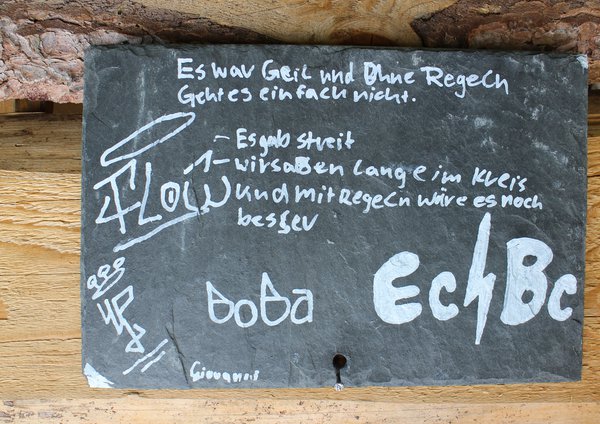 Es war Geil und Ohne Regeln
Geht es einfach nicht.
- Es gab streit
- wir saßen lange im Kreis
FLOW
und mit Regeln wäre es noch
besser
Ec Bc
BoBa
Giovanni